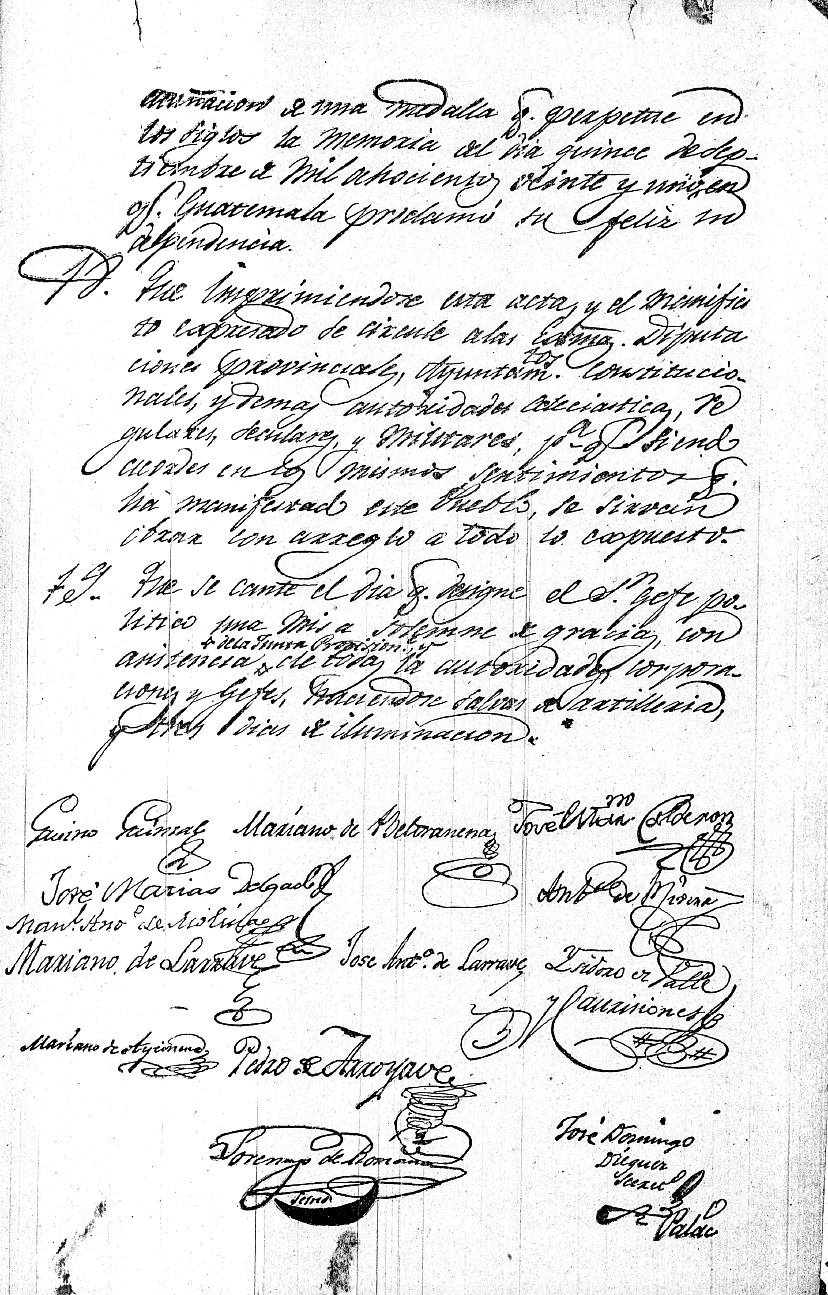 acuñacion de una medalla q. perpetue en
los siglos la memoria del dia quince de Sep-
tiembre de Mil ahociento, veinte y uno, en
q. Guatemala proclamó su feliz in
dependencia.
18. Que imprimiendose esta acta, y el Manifies
to expresado se circule a las Exma. Diputa
ciones provinciale, Ayuntam.tos Constitucio-
nales, y demas autoridades eclesiastica, re
gulares, seculares, y Militares, p.a q.e siend
acordes en los mismos sentimientos q.
ha manifestad este Pueblo, se sirvan
obrar con arreglo a todo lo expuesto.
19. Que se cante el dia q. designe el S.r Gefe po-
litico una Misa solemne de gracia, con
asistencia de la Junta Provision.l, de toda, la autoridade, corpora-
cione, y Gefes, haciendose salvas de artilleria,
y tres dias de iluminacion.
Gavino Gainza Mariano de Beltranena José Mar.no Calderon
José Matias Delgado Ant.o de Rivera
Man.l Ant.o de Molina
Mariano de Larrave Jose Ant.o de Larrave Ysidoro de Valle
y Castriciones
Mariano de Aycinena Pedro de Arroyave
Lorenzo de Romaña
Secret.
José Domingo
Dieguez
Secret.o
Palac